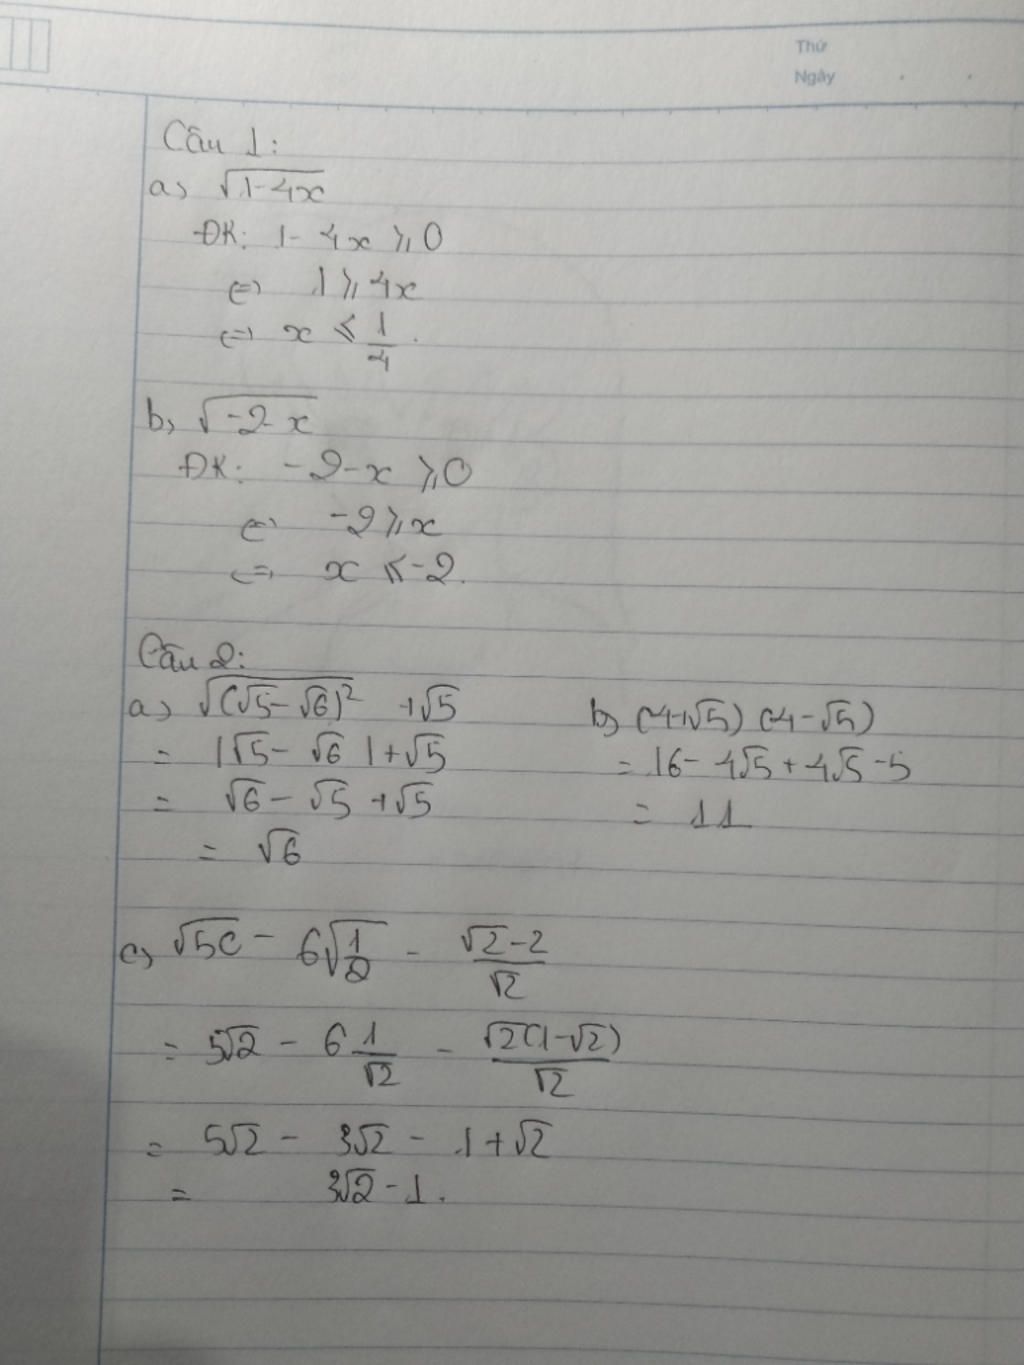 Thứ
Ngày
Câu 1:
a, √(1-4x)
ĐK: 1-4x ⩾ 0
⇔ 1 ⩾ 4x
⇔ x ⩽ 1/4.
b, √(-2-x)
ĐK: -2-x ⩾ 0
⇔ -2 ⩾ x
⇔ x ⩽ -2.
Câu 2:
a, √((√5-√6)²) + √5
= |√5-√6| + √5
= √6 - √5 + √5
= √6
b, (4+√5)(4-√5)
= 16 - 4√5 + 4√5 - 5
= 11
c, √50 - 6√(1/2) - (√2-2)/√2
= 5√2 - 6 1/√2 - √2(1-√2)/√2
= 5√2 - 3√2 - 1 + √2
= 3√2 - 1.